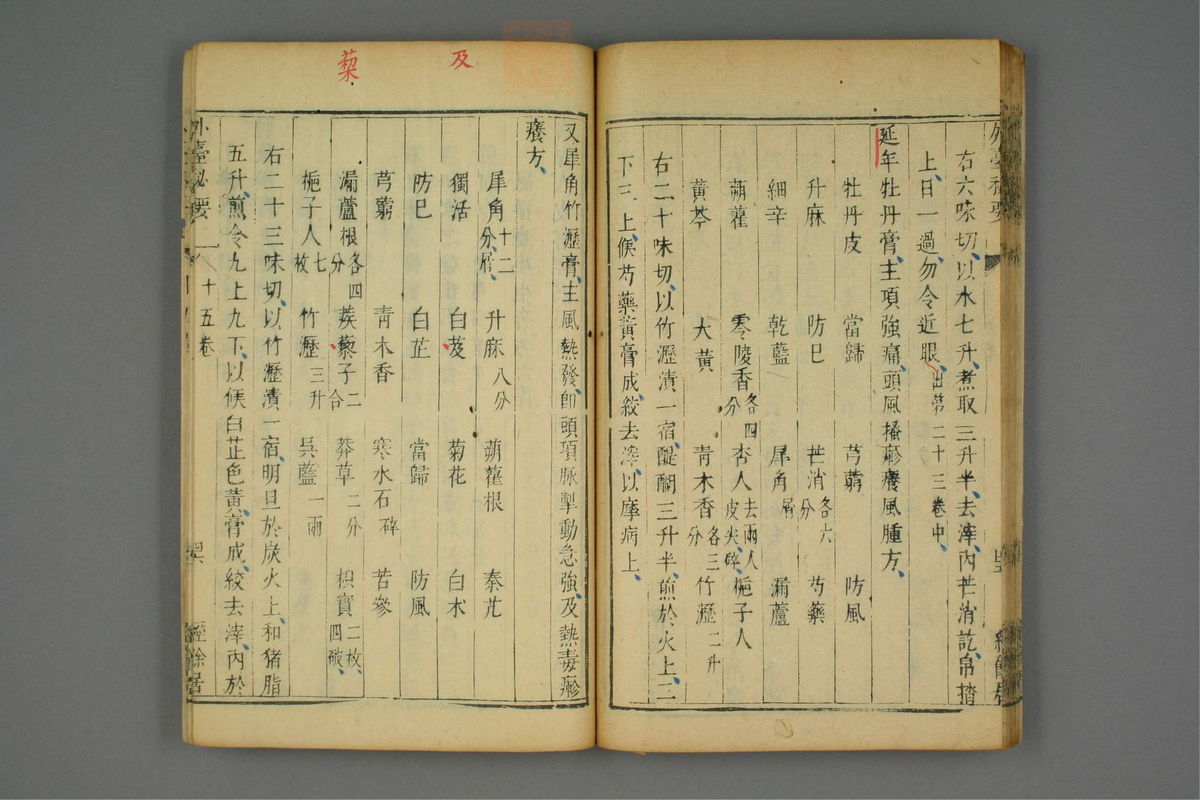 右六味切以水七升煮取三升半去滓內芒消訖帛搚
上日一過勿令近眼出第二十三卷中
延年牡丹膏主項強痛頭風搔癮癢風腫方
牡丹皮 當歸 芎藭 防風
升麻 防巳 芒消各六分 芍藥
細辛 乾藍 犀角屑 漏蘆
蒴藋 零陵香各四分 杏人去兩人皮尖碎 梔子人
黃芩 大黃 青木香各三分 竹瀝二升
右二十味切以竹瀝漬一宿醍醐三升半煎於火上三
下三上候芍藥黃膏成絞去滓以摩病上
又犀角竹瀝膏主風熱發即頭項脉掣動急強及熱毒癮
癢方
犀角十二分屑 升麻八分 蒴藋根 秦艽
獨活 白芨 菊花 白朮
防巳 白芷 當歸 防風
芎藭 青木香 寒水石碎 苦參
漏蘆根各四分 蒺藜子二合 莽草二分 枳實二枚四破
梔子人七枚 竹瀝三升 吳藍一兩
右二十三味切以竹瀝漬一宿明旦於炭火上和猪脂
五升煎令九上九下以候白芷色黃膏成絞去滓內於
外臺秘要 十五卷 經餘居
及
藜